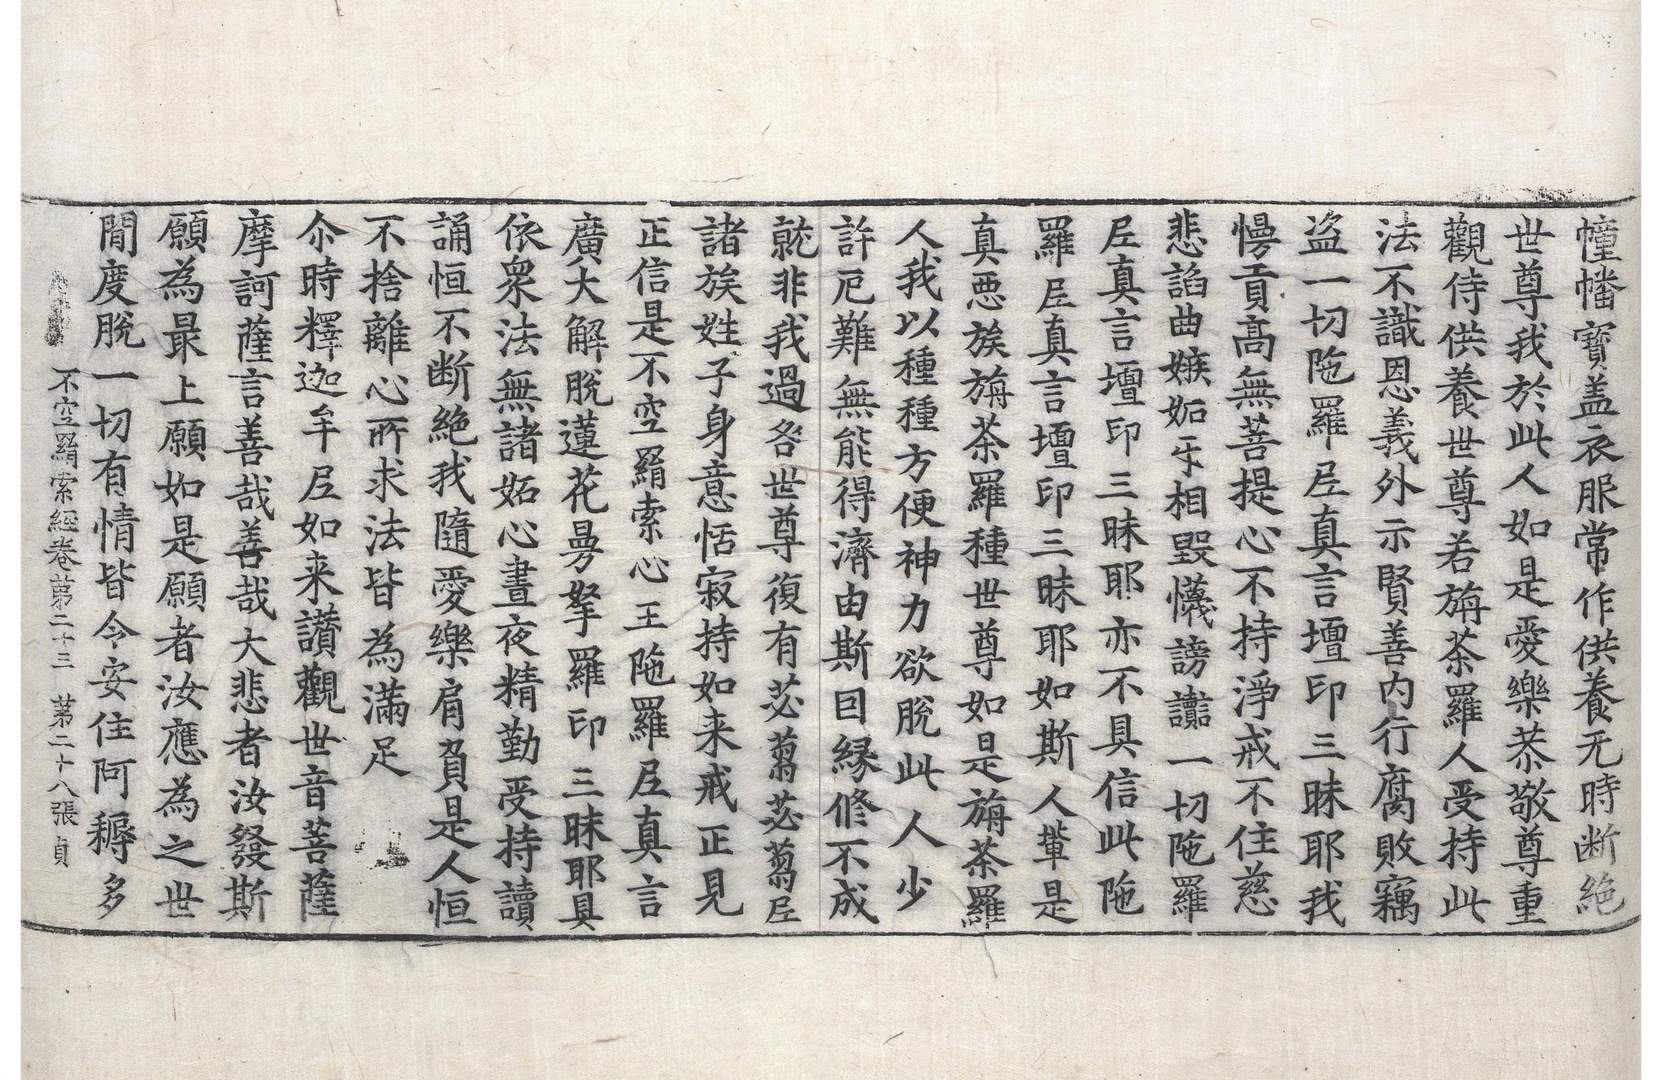 幢幡寶盖衣服常作供養无時断絶
世尊我於此人如是愛樂恭敬尊重
觀侍供養世尊若旃荼羅人受持此
法不識恩義外示賢善内行腐敗竊
盗一切陁羅尼真言壇印三昧耶我
慢貢髙無菩提心不持淨戒不住慈
悲謟曲嫉妬㸦相毀懱謗讟一切陁羅
尼真言壇印三昧耶亦不具信此陁
羅尼真言壇印三昧耶如斯人輩是
真惡族旃荼羅種世尊如是旃荼羅
人我以種種方便神力欲脱此人少
許厄難無能得濟由斯因縁修不成
就非我過咎世尊復有苾蒭苾蒭尼
諸族姓子身意恬寂持如来戒正見
正信是不空羂索心王陁羅尼真言
廣大解脱蓮花曼拏羅印三昧耶具
依衆法無諸妬心晝夜精勤受持讀
誦恒不断絶我隨愛樂肩負是人恒
不捨離心所求法皆為滿足
尒時釋迦牟尼如来讃觀世音菩薩
摩訶薩言善哉善哉大悲者汝發斯
願為最上願如是願者汝應為之世
閒度脱一切有情皆令安住阿耨多
不空羂索經卷第二十三　第二十八張　貞